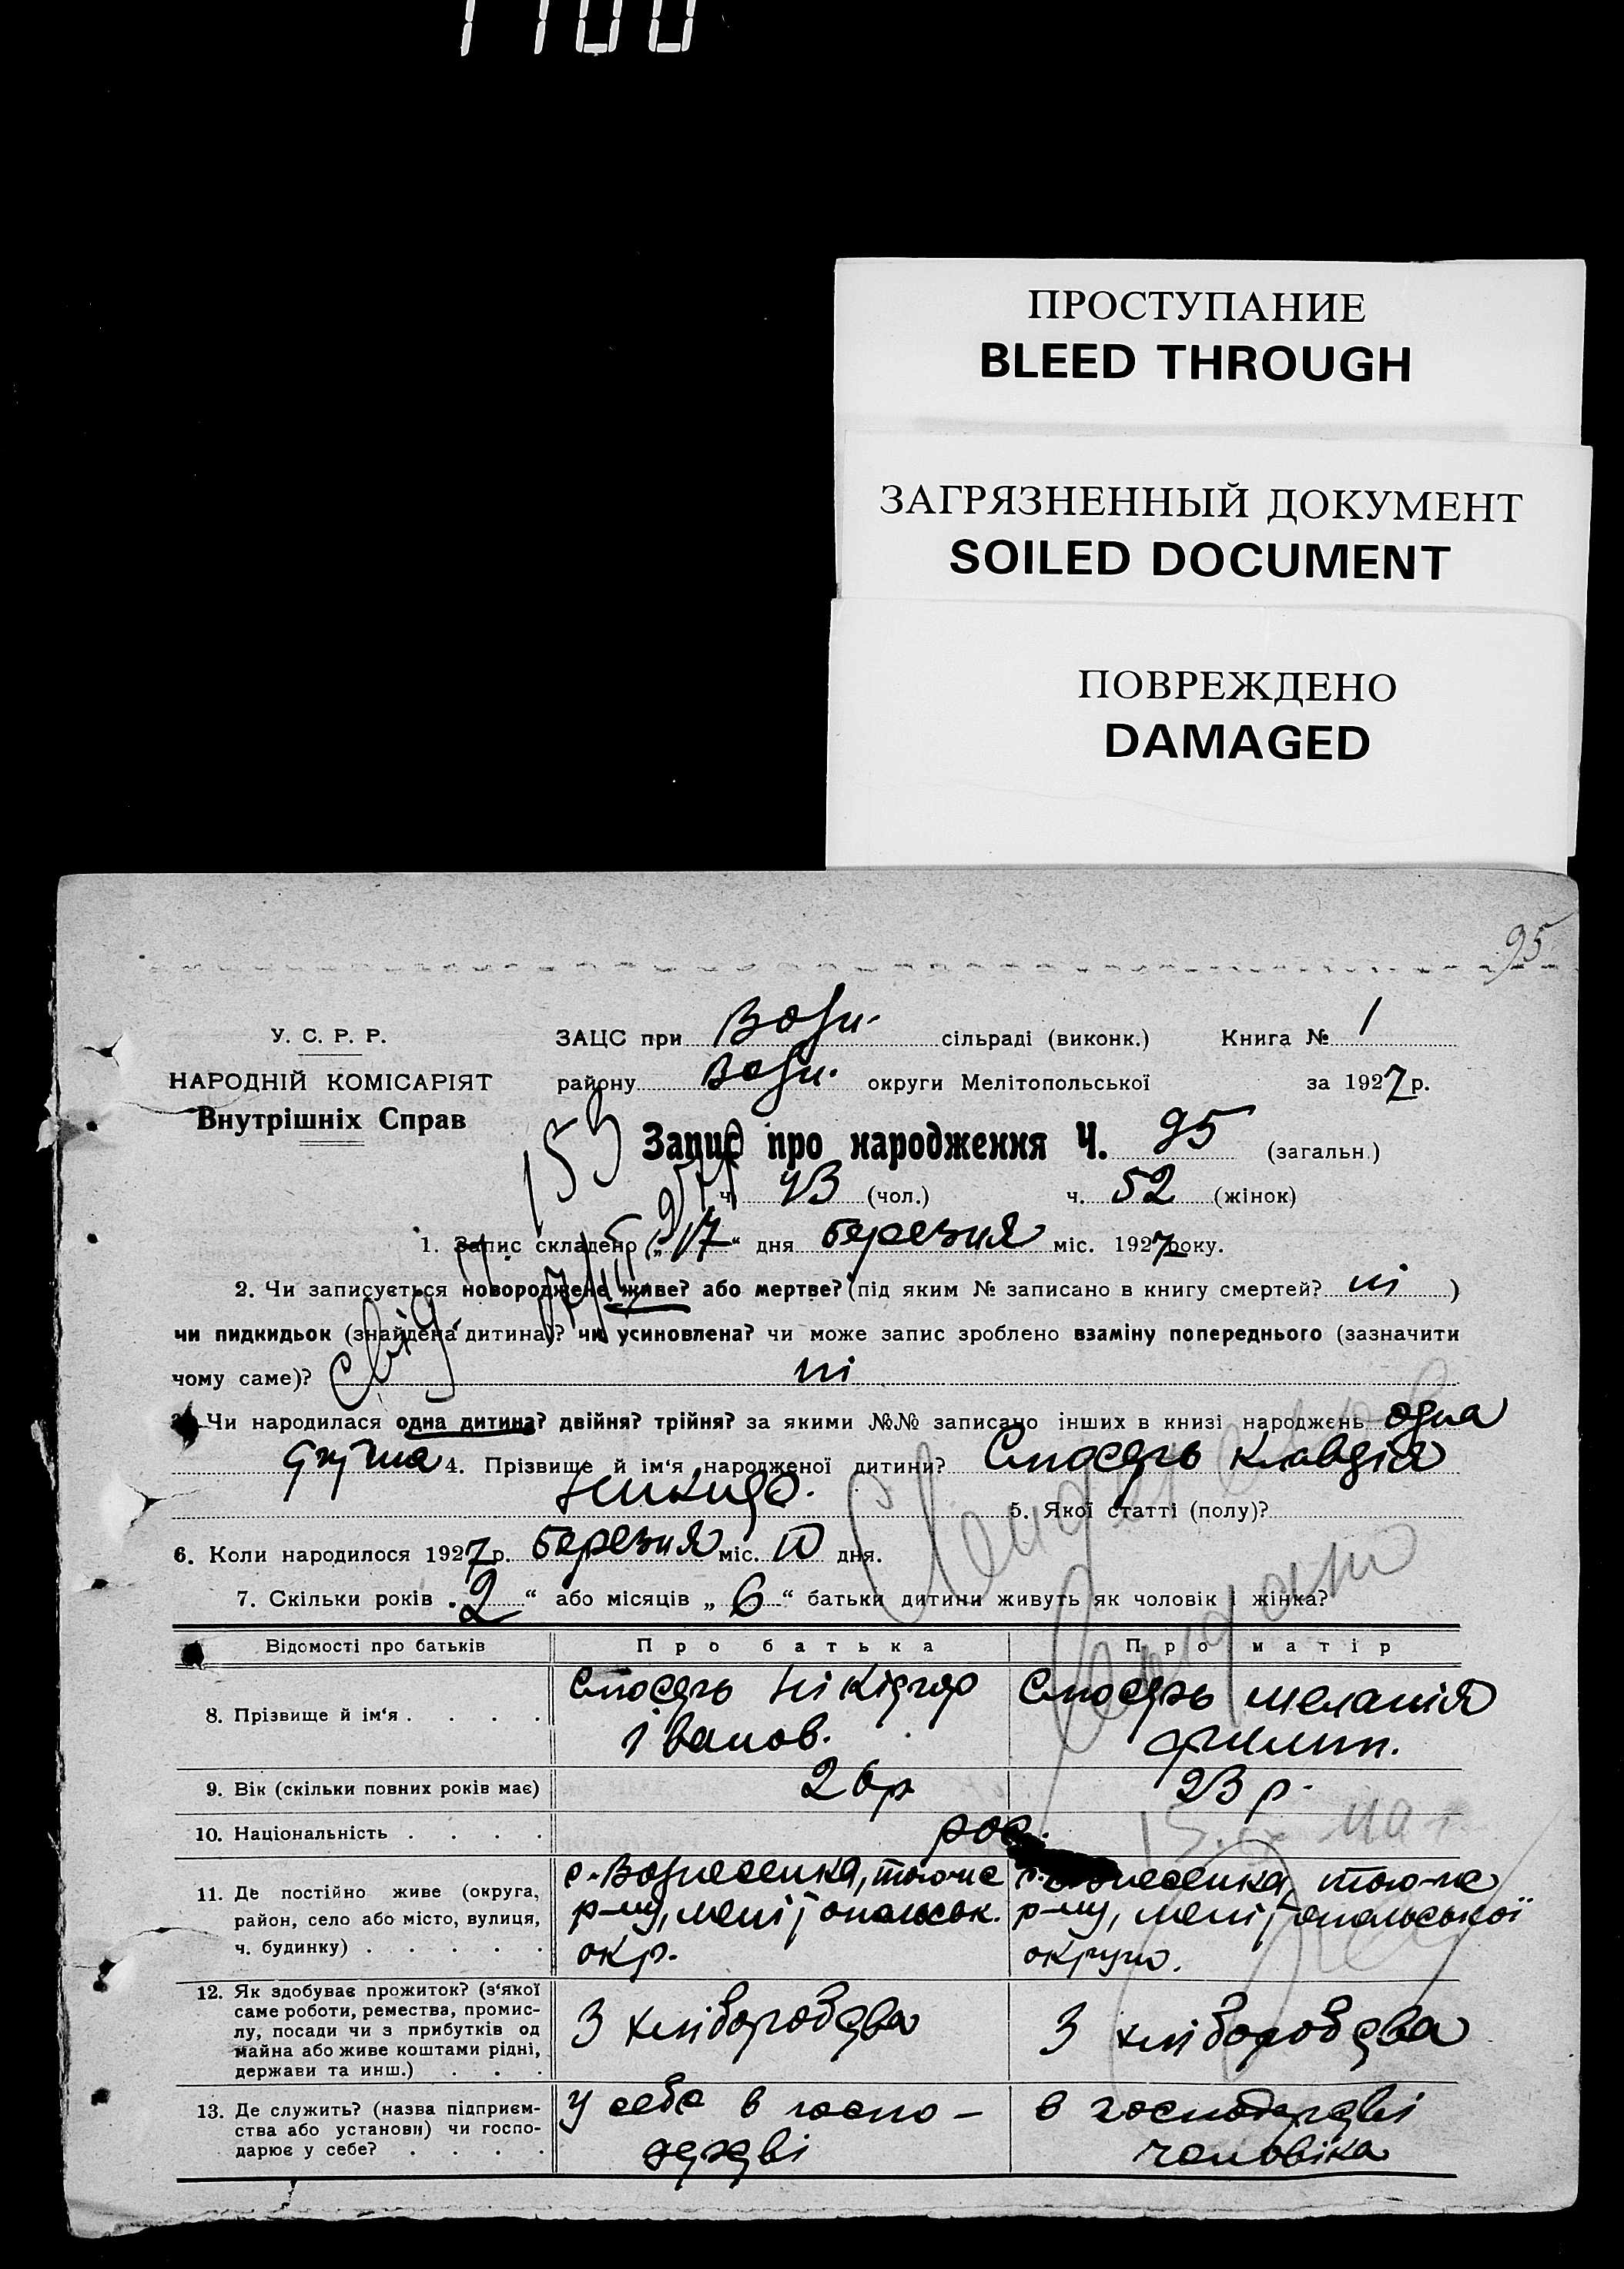 ПРОСТУПАНИЕ
BLEED THROUGH
ЗАГРЯЗНЕННЫЙ ДОКУМЕНТ
SOILED DOCUMENT
ПОВРЕЖДЕНО
DAMAGED
95
У. С. Р. Р.
НАРОДНІЙ КОМІСАРІЯТ
Внутрішніх Справ
ЗАЦС при Возн. сільраді (виконк.) Книга № 1
району Возн. округи Мелітопольської за 1927 р.
153
Запис про народження Ч. 95 (загальн.)
ч. 43 (чол.) ч. 52 (жінок)
1. Запис складено „17“ дня березня міс. 1927 року.
2. Чи записується новороджене живе? або мертве? (під яким № записано в книгу смертей? ні )
чи пидкидьок (знайдена дитина)? чи усиновлена? чи може запис зроблено взаміну попереднього (зазначити
чому саме)? ні
3. Чи народилася одна дитина? двійня? трійня? за якими №№ записано інших в книзі народжень одна
4. Прізвище й ім'я народженої дитини? Клавдія
5. Якої статті (полу)?
6. Коли народилося 1927 р. березня міс. дня.
7. Скільки років „2“ або місяців „6“ батьки дитини живуть як чоловік і жінка?
Відомості про батьків Про батька Про матір
8. Прізвище й ім'я . . . .
Іванов. Филип.
9. Вік (скільки повних років має) 26 р 23 р.
10. Національність . . . . рос.
11. Де постійно живе (округа, район, село або місто, вулиця, ч. будинку) . . . . .
с. Вознесенка, того-ж
р-ну, мелітопольськ.
окр.
того-ж
р-ну, мелітопольської
округи.
12. Як здобуває прожиток? (з'якої саме роботи, ремества, промислу, посади чи з прибутків од майна або живе коштами рідні, держави та инш.) . . .
З хліборобства З хліборобства
13. Де служить? (назва підприємства або установи) чи господарює у себе? . . . .
У себе в госпо-
дарстві
в господарстві
чоловіка